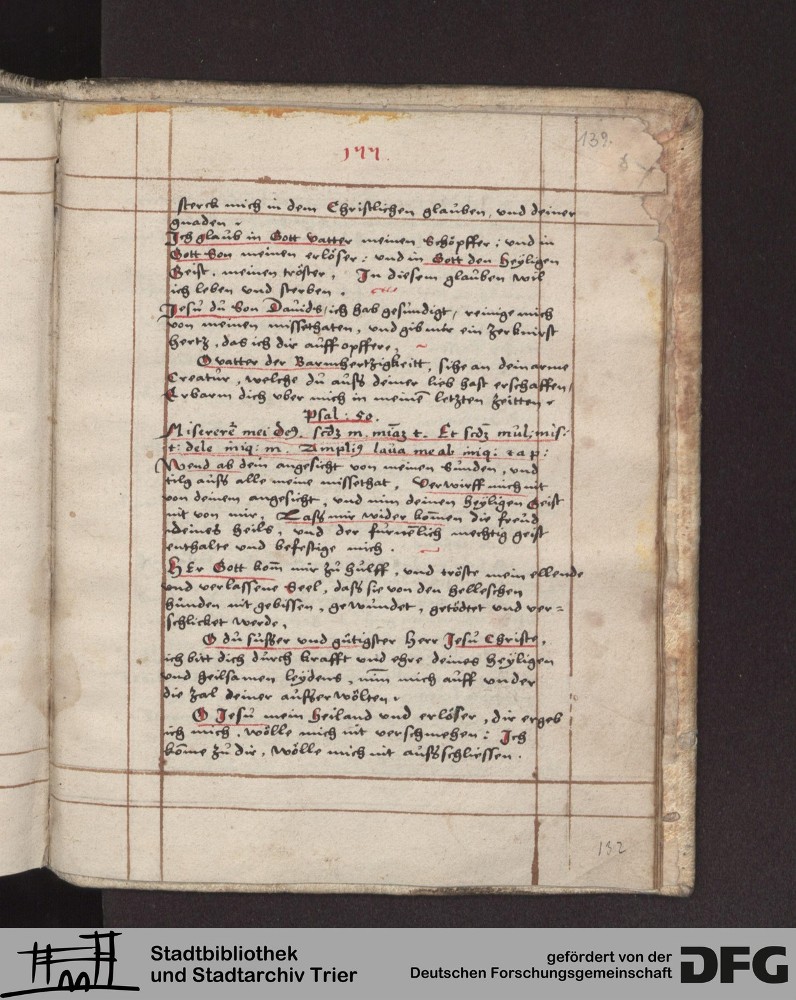 177
139.
sterck mich in dem Christlichen glauben, und deiner
gnaden.
Ich glaub in Gott vatter meinen Schöpffer: und in
Gott Son meinen erlöser: und in Gott den Heyligen
Geist, meinen tröster. In diesem glauben wil
ich leben und sterben.
Jesu du Son Dauids, ich hab gesundigt, reinige mich
von meinen missethaten, und gib mir ein zerknirst
hertz, das ich dir auff opffere.
O vatter der Barmhertzigkeitt, sihe an dein arme
Creatur, welche du auss deiner lieb hast erschaffen,
Erbarm dich uber mich in meinē letzten zeitten.
Psal: 50.
Misererē mei de9. scdz m. miāz t. Et scdz mul: mis:
t: dele iniq: m. Ampli9 laua me ab iniq: t a p:
Wend ab dein angesicht von meinen Sunden, und
tilg auss alle meine missethat. Verwirff mich nit
von deinem angesicht, und nim deinen Heyligen Geist
nit von mir. Lass mir wider kommen die freud
deines Heils, und der fürnēlich mechtig geist
enthalte und befestige mich.
HEr Gott kom mir zu hulff, und tröste mein ellende
und verlassene Seel, dass sie von den helleschen
hunden nit gebissen, gewundet, getödtet und ver=
schlicket werde.
O du süsser und gütigster Herr Jesu Christe,
ich bitt dich durch krafft und ehre deines Heyligen
und heilsamen leydens, nim mich auff under
die zal deiner ausserwölten.
O Jesu mein Heiland und erlöser, dir ergeb
ich mich, wölle mich nit verschmehen: Ich
kome zu dir, wölle mich nit aussschliessen.
132
Stadtbibliothek
und Stadtarchiv Trier
gefördert von der
Deutschen Forschungsgemeinschaft
DFG